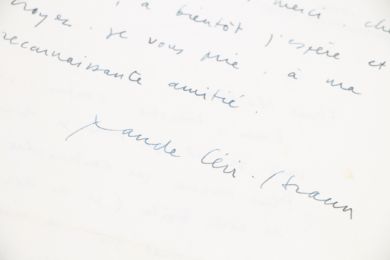 merci. che
à bientôt j'espère et
croyez. je vous prie. à ma
reconnaissante amitié.
Claude Lévi-Strauss